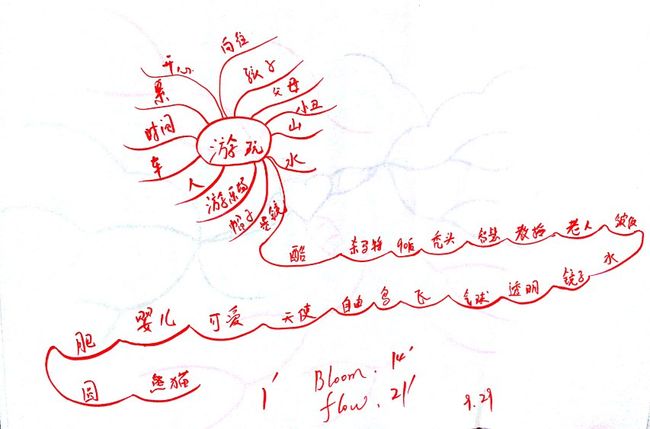 开心
向往
孩子
父母
小丑
山
水
累
时间
车
人
游乐园
帽子
墨镜
游玩
酷
杀马特
90后
秃头
老人
水
镜子
透明
气球
飞
鸟
自由
天使
可爱
婴儿
肥
圆
熊猫
1′
Bloom. 14′
flow. 21′
9.29